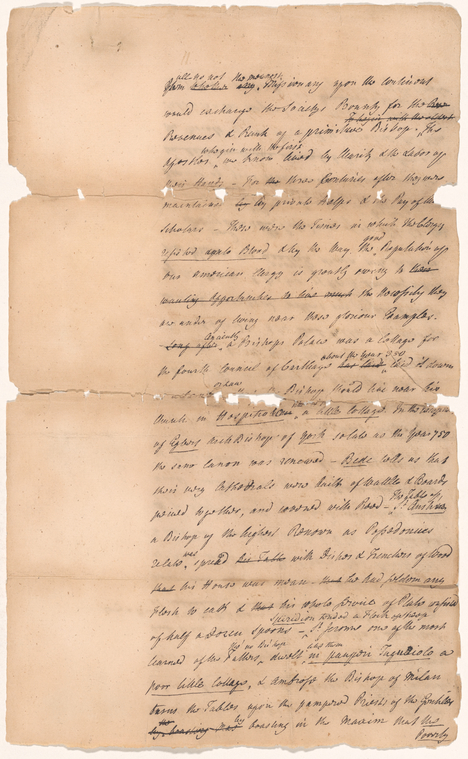 all is not the meanest
Missionary upon the Continent
would exchange the Society's Bounty for the
Revenues & Rank of a primitive Bishop. The
to begin with the first
Apostles, we know lived by Charity & the Labor of
their Hands. For three Centuries after they were
maintained by private Helps & the Pay of the
Scholars - These were the Times in which the Clergy
resisted unto Blood & by the Way the good Reputation of
our American Clergy is greatly owing to
wanting Opportunities to live much the Necessity they
are under of living near these glorious Examples.
Long after, anciently a Bishops Palace was a Cottage for
about the year 390
the fourth Council of Carthage laid it down
a Bishop should have near his
Church an Hospitiolum, a little Cottage. In the
of Egbert ArchBishop of York so late as the Year 750
the same Canon was renewed - Bede tells us that
their very Cathedrals were built of Wattles & Boards
joined together, and covered with Reed - St. Austin
a Bishop of the highest Renown as Possidonius
relates, was served with Dishes & Trenchers of Wood
that his House was mean he had seldom any
Flesh to eat & that his whole Service of Plate
of half a dozen Spoons - St. Jerome one of the most
learned of the Fathers, dwelt in paupere Tuguriolo a
poor little Cottage, & Ambrose the Bishop of Milan
turns the Tables upon the pampered Priests of the Gentiles
by boasting in the Maxim that the
Poverty